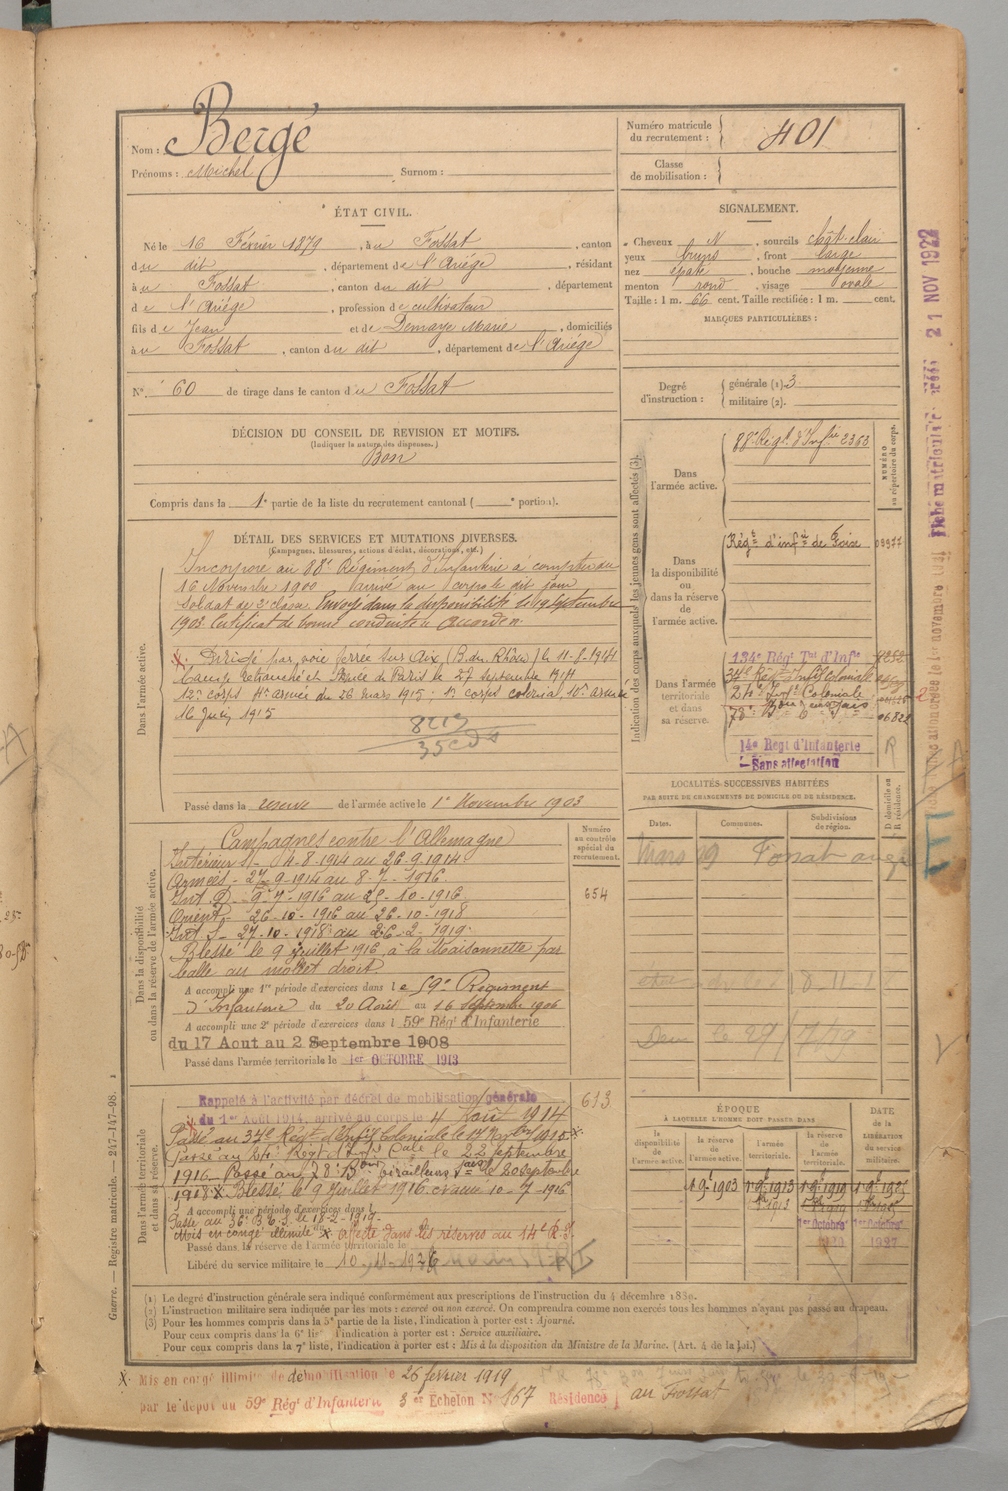 Nom : Bergé
Prénoms : Michel Surnom :
Numéro matricule
du recrutement : 401
Classe
de mobilisation :
ÉTAT CIVIL.
Né le 16 Février 1879, à u Fossat, canton
du dit, département de l'Ariège, résidant
à u Fossat, canton du dit, département
de l'Ariège, profession de cultivateur
fils de Jean et de Demaye Marie, domiciliés
à u Fossat, canton du dit, département de l'Ariège
N° 60 de tirage dans le canton d u Fossat
SIGNALEMENT.
Cheveux N, sourcils chât. clair
yeux bruns, front large
nez épaté, bouche moyenne
menton rond, visage ovale
Taille : 1 m. 66 cent. Taille rectifiée : 1 m. cent.
MARQUES PARTICULIÈRES :
Degré
d'instruction :
générale (1) 3
militaire (2).
DÉCISION DU CONSEIL DE REVISION ET MOTIFS.
(Indiquer la nature des dispenses.)
Bon
Compris dans la 1e partie de la liste du recrutement cantonal ( e portion).
DÉTAIL DES SERVICES ET MUTATIONS DIVERSES.
(Campagnes, blessures, actions d'éclat, décorations, etc.)
Dans l'armée active.
Incorporé au 88e Régiment d'Infanterie à compter du
16 Novembre 1900 Arrivé au corps le dit jour
Soldat de 2e classe. Envoyé dans la disponibilité le 19 Septembre
1903. Certificat de bonne conduite accordé.
Dirigé par voie ferrée sur Aix (B. du Rhône) le 11-8-1914
Camp retranché et Armée de Paris le 27 septembre 1914
12e corps 4e armée du 26 mars 1915. 1er corps colonial 10e armée
16 Juin 1915
8219
Passé dans la réserve de l'armée active le 1er Novembre 1903
Indication des corps auxquels les jeunes gens sont affectés (3).
NUMÉRO
au répertoire du corps.
Dans
l'armée active.
88e Régt d'Infie 2363
Dans
la disponibilité
ou
dans la réserve
de
l'armée active.
Régt d'infie de Foix 03977
Dans l'armée
territoriale
et dans
sa réserve.
134e Régt Tal d'Infie
37e Régt Infie Coloniale
24e Infie Coloniale
78e Bon
06822
14e Régt d'Infanterie
Sans affectation
R
LOCALITÉS SUCCESSIVES HABITÉES
PAR SUITE DE CHANGEMENTS DE DOMICILE OU DE RÉSIDENCE.
Dates.
Communes.
Subdivisions
de région.
D domicile ou
R résidence.
Mars 19 Fossat
Dans la disponibilité
ou dans la réserve de l'armée active.
Numéro
au contrôle
spécial du
recrutement.
654
Campagnes contre l'Allemagne
Intérieur S - 4-8-1914 au 26-9-1914
Armées - 27-9-1914 au 8-7-1916
Int D - 9-7-1916 au 25-10-1916
Orient - 26-10-1916 au 26-10-1918
Int S - 27-10-1918 au 26-2-1919
Blessé le 9 juillet 1916, à la Maisonnette par
balle au mollet droit
A accompli une 1re période d'exercices dans le 59e Régiment
d'Infanterie du 20 Août au 16 Septembre 1906
A accompli une 2e période d'exercices dans l 59e Régt d'Infanterie
du 17 Aout au 2 Septembre 1908
Passé dans l'armée territoriale le 1er OCTOBRE 1913
Dans l'armée territoriale
et dans sa réserve.
613
Rappelé à l'activité par décret de mobilisation générale
du 1er Août 1914, arrivé au corps le 4 Août 1914
Passé au 37e Régt d'Infie Coloniale le 17
Passé au 24e Régt d'Infie Cale le 22 septembre
1916. Passé au 78e Bon tirailleurs le 20 septembre
1918. Blessé le 9 Juillet 1916 évacué 10-7-1916
A accompli une période d'exercices dans l
Passé au le 18-2-1919
Mis en congé illimité affecté dans les réserves au 14e R.I.
Passé dans la réserve de l'armée territoriale le
Libéré du service militaire le 10-11-1926
ÉPOQUE
À LAQUELLE L'HOMME DOIT PASSER DANS
DATE
DE LA
LIBÉRATION
DU SERVICE
militaire.
la
disponibilité
de
l'armée active.
la réserve
de
l'armée active.
l'armée
territoriale.
la réserve
de l'armée
territoriale.
1 9e 1903 1 9e 1913 1 9e 1919 1 9e 1925
1er Octobre 1er Octobre
1927
(1) Le degré d'instruction générale sera indiqué conformément aux prescriptions de l'instruction du 4 décembre 1889.
(2) L'instruction militaire sera indiquée par les mots : exercé ou non exercé. On comprendra comme non exercés tous les hommes n'ayant pas passé au drapeau.
(3) Pour les hommes compris dans la 5e partie de la liste, l'indication à porter est : Ajourné.
Pour ceux compris dans la 6e liste l'indication à porter est : Service auxiliaire.
Pour ceux compris dans la 7e liste, l'indication à porter est : Mis à la disposition du Ministre de la Marine. (Art. 4 de la loi.)
Mis en congé illimité de démobilisation le 26 février 1919
par le dépôt du 59e Régt d'Infanterie 3e Echelon N° 167 Résidence au Fossat
Guerre. — Registre matricule. — 247-147-98.
21 NOV 1922